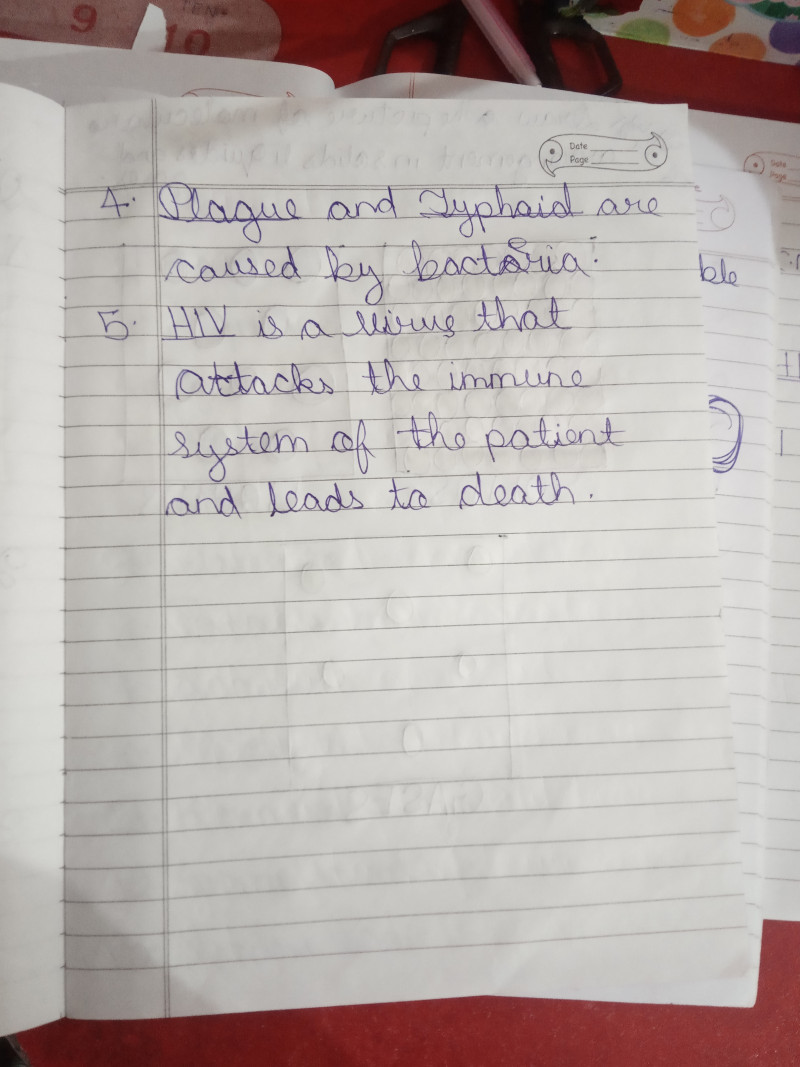 9
TEN-
10
Date
Page
4. Plague and Typhoid are
caused by bacteria.
5. HIV is a virus that
attacks the immune
system of the patient
and leads to death.
ble
Date
Page